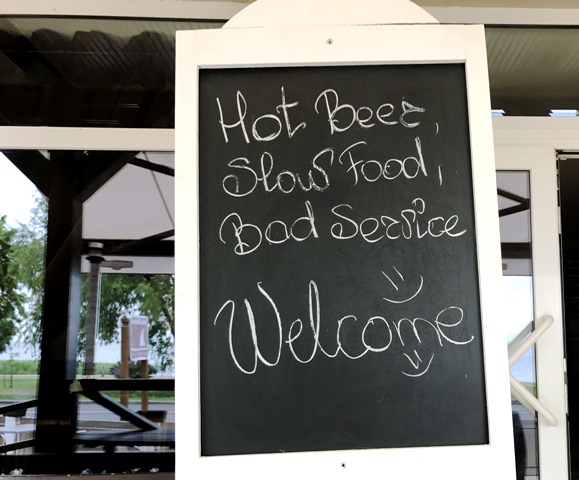 Hot Beer,
Slow Food,
Bad Service
Welcome